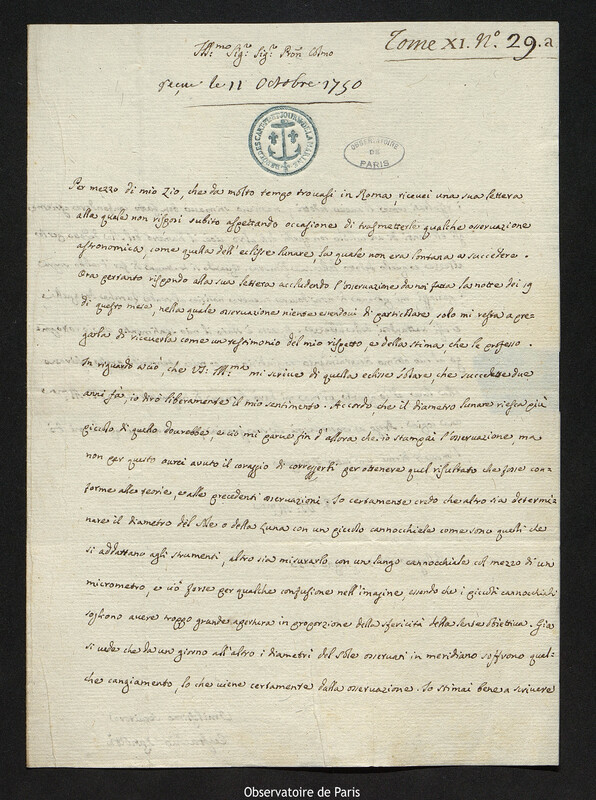 Tome XI. N.º 29.a
Ill:mo Sig:re Sig:re Pron Colmo
reçue le 11 Octobre 1750
OBSERVATOIRE DE PARIS
Per mezzo di mio Zio, che da molto tempo trovasi in Roma, ricevei una sua lettera
alla quale non risposi subito aspettando occasione di trasmetterle qualche osservazione
astronomica, come quella dell'eclisse lunare la quale non era lontana a succedere.
Ora pertanto rispondo alla sua lettera accludendo l'osservazione da noi fatta la notte dei 19
di questo mese, nella quale osservazione niente essendovi di particolare, solo mi resta a pre-
garla di riceverla come un testimonio del mio rispetto, e della stima, che le professo.
In riguardo a ciò, che VS: Ill:ma mi scrive di quella eclisse solare, che succedette due
anni fà, io dirò liberamente il mio sentimento. Accordo, che il diametro lunare riesca più
piccolo di quello dovrebbe, e ciò mi parve fin d'allora che io stampai l'osservazione, ma
non per questo ourei avuto il coraggio di correggerli per ottenere quel risultato che fosse con-
forme alle teorie, e alle precedenti osservazioni. Io certamente credo che altro sia determi-
nare il diametro del Sole o della Luna con un piccolo cannocchiale come sono quelli che
si addattano agli strumenti, altro sia misurarlo con un lungo cannocchiale col mezzo di un
micrometro, e ciò forse per qualche confusione nell'imagine, essendo che i piccoli cannocchiali
sogliono avere troppo grande apertura in proporzione della sfericità della Lente Obiettiva. Già
si vede che da un giorno all'altro i diametri del Sole osservati in meridiano soffrono qual-
che cangiamento, lo che viene certamente dalla osservazione. Io stimai bene a scrivere
Observatoire de Paris